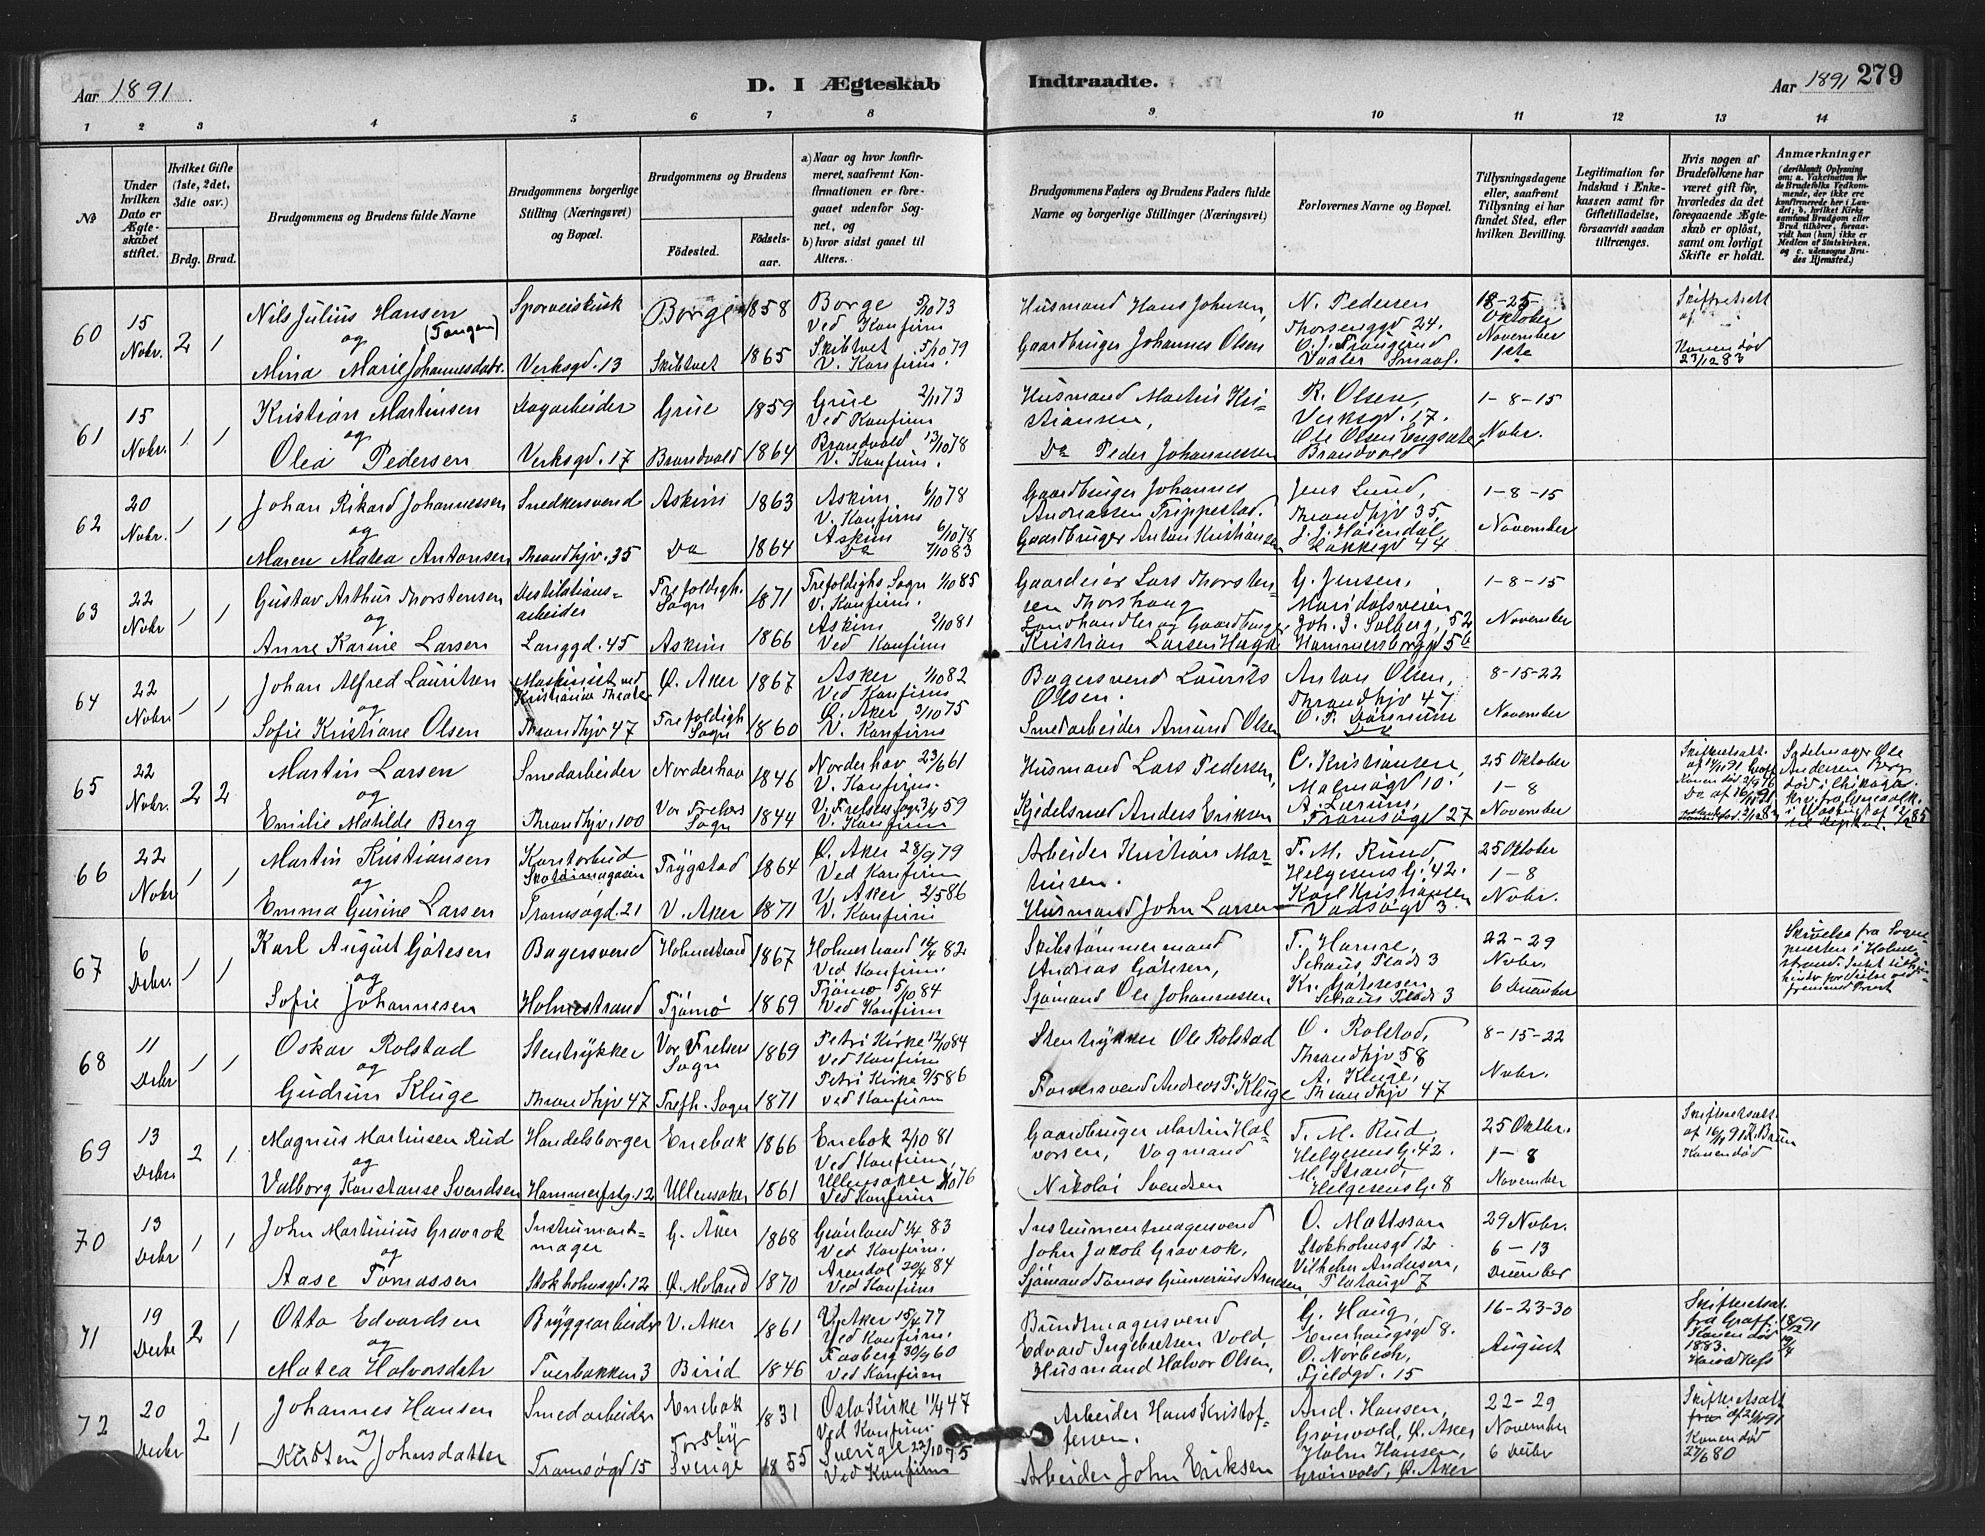 Aar 1891.
D. I Ægteskab Indtraadte.
Aar 1891 279
1 2 3 4 5 6 7 8 9 10 11 12 13 14
№
Under hvilken Dato er Ægteskabet stiftet.
Hvilket Gifte (1ste, 2det, 3die osv.)
Brdg. Brud.
Brudgommens og Brudens fulde Navne
Brudgommens borgerlige Stilling (Næringsvei) og Bopæl.
Brudgommens og Brudens
Födested.
Födselsaar.
a) Naar og hvor konfirmeret, saafremt Konfirmationen er foregaaet udenfor Sognet, og
b) hvor sidst gaaet til Alters.
Brudgommens Faders og Brudens Faders fulde Navne og borgerlige Stillinger (Næringsvei)
Forlovernes Navne og Bopæl.
Tillysningsdagene eller, saafremt Tillysning ei har fundet Sted, efter hvilken Bevilling.
Legitimation for Indskud i Enkekassen samt for Giftetilladelse, forsaavidt saadan tiltrænges.
Hvis nogen af Brudefolkene har været gift för, hvorledes da det foregaaende Ægteskab er oplöst, samt om lovligt Skifte er holdt.
Anmærkninger
(deriblandt Oplysning om: a. Vaccination for de Brudefolks Vedkommende, der ikke ere konfirmerede her i Landet; b. hvilket Kirkesamfund Brudgom eller Brud tilhörer, forsaavidt han (hun) ikke er Medlem af Statskirken, og c. udensogns Brudes Hjemsted.)
60 15 Novbr. 2 1
Nils Julius Hansen (Tangen) og Mina Marie Johannesdatr.
Sporveiskusk Verksgd. 13
Borge 1858 Skibtvet 1865
Borge 5/10 73 Ved Konfirm Skibtvet 5/10 79 V. Konfirm.
Husmand Hans Johnsen, Gaardbruger Johannes Olsen
N. Pedersen Thorsenggd 24. Vaaler Smaal.
18-25 Oktober November 1ste
Skifteretsatt af Konen död 23/12 83
61 15 Nobr. 1 1
Kristian Martinsen og Olea Pedersen
Dagarbeider Verksgd. 17
Grue 1859 Brandvold 1864
Grue 2/11 73 Ved Konfirm Brandvold 13/10 78 V. Konfirm.
Husmand Martin Kristiansen, Do Peder Johannessen
R. Olsen, Verksgd. 17. Ole Olsen Brandvold
1-8-15 Nobr.
62 20 Nobr. 1 1
Johan Rikard Johannessen og Maren Matea Antonsen
Snedkersvend Throndhjv. 35
Askim 1863 Do 1864
Askim 6/10 78 V. Konfirm Askim 6/10 78 Do 7/10 83
Gaardbruger Johannes Andreassen Trippestad. Gaardbruger Anton Kristiansen
Jens Lund, Throndhjv 35. J. J. Høiendal Løkkegd 44
1-8-15 November
63 22 Nobr 1 1
Gustav Arthur Thorstensen og Anne Karine Larsen
Destilationsarbeider Langgd. 45
Trefoldigh. Sogn 1871 Askim 1866
Trefoldighs Sogn 1/10 85 V. Konfirm. Askim 2/10 81 Ved Konfirm
Gaardeier Lars Thorstensen Thorshaug Landhandler og Gaardbruger Kristian Larsen
G. Jensen, Maridalsveien Joh. J. Solberg, 52 Hammersborggd 56
1-8-15 November
64 22 Nobr. 1 1
Johan Alfred Lauritsen og Sofie Kristiane Olsen
Maskinist ved Kristiania Theater Throndhjv 47
Ø. Aker 1867 Trefoldigh Sogn 1860
Asker 1/10 82 Ved Konfirm Ø. Aker 3/10 75 V. Konfirm
Bagersvend Laurits Olsen. Smedarbeider Amund Olsen
Anton Olsen, Throndhjv 47 Do
8-15-22 November
65 22 Nobr. 2 2
Martin Larsen og Emilie Matilde Berg
Smedarbeider Throndhjv. 100
Norderhov 1846 Vor Frelsers Sogn 1844
Norderhov 23/6 61 V. Konfirm. V. Frelsers Sogn 3/4 59 V. Konfirm
Husmand Lars Pedersen, Kjedelsmed Anders Eriksen
C. Kristiansen, Malmøgd 10. A. Lerum, Tromsøgd 27
25 Oktober 1-8 November
Skifteretsatt. Konen död
Sadelmager Ole Andersen Berg död i Chikago
66 22 Nobr 1 1
Martin Kristiansen og Emma Gurine Larsen
Kontorbud Skotöimagasin Tromsøgd. 21
Trygstad 1864 V. Aker 1871
Ø. Aker 28/9 79 Ved Konfirm V. Aker 2/5 86 V. Konfirm
Arbeider Kristian Martinsen. Husmand John Larsen
T. M. Rund, Helgesensg. 42. Karl Kristiansen Vadsøgd 3.
25 Oktober 1-8 Nobr.
67 6 Debr. 1 1
Karl August Gøtesen og Sofie Johannesen
Bagersvend Holmestrand
Holmestrand 1867 Tjømø 1869
Holmestrand 16/4 82 Ved Konfirm. Tjømø 5/10 84 Ved Konfirm
Skibstømmermand Andreas Gøtesen, Sjømand Ole Johannessen
T. Hamre, Schaus Plads 3 Kr. Gøtesen Schaus Plads 3
22-29 Nobr. 6 December
Skrivelse fra Sognepresten i Holmestrand. Intet til Hinder for Vielse ved fremmed Prest
68 11 Debr 1 1
Oskar Rolstad og Gudrun Kluge
Stentrykker Throndhjv 47
Vor Frelsers Sogn 1869 Trefh. Sogn 1871
Petri Kirke 12/10 84 Ved Konfirm Petri Kirke 9/5 86 Ved Konfirm
Stentrykker Ole Rolstad Farversvend Andreas T. Kluge
O. Rolstad, Throndhjv 58 A. Kluge, Throndhjv 47
8-15-22 Nobr.
69 13 Debr. 2 1
Magnus Martinsen Rud og Valborg Konstanse Svendsen
Handelsborger Hammerfstg. 12
Enebak 1866 Ullensaker 1861
Enebok 2/10 81 Ved Konfirm, Ullensaker 1/10 76 Ved Konfirm
Gaardbruger Martin Halvorsen, Vognmand Nikolai Svendsen
T. M. Rud, Helgesensg. 42. M. Strand, Helgesensg. 8
25 Oktbr. 1-8 November
Skifteretsatt. af 16/10 91 Konen död
70 13 Debr 1 1
John Martinius Gravrok og Aase Tomassen
Instrumentmager Stokholmsgd. 12
G. Aker 1868 Ø. Moland 1870
Grønland 1/4 83 Ved Konfirm. Arendal 20/4 84 Ved Konfirm
Instrumentmagersvend John Jakob Gravrok, Sjømand Tomas Gunnerius Arnesen,
O. Mattsson Stokholmsgd 12 Vilhelm Andersen, Platougd 7
29 Nobr. 6-13 December
71 19 Decbr 2 1
Otto Edvardsen og Matea Halvorsdatr
Bryggearbeider Tverbakken 3
V. Aker 1861 Birid 1846
V. Aker 15/4 77 Ved Konfirm. Faaberg 30/9 60 Ved Konfirm
Bundtmagersvend Edvard Ingebretsen Vold, Husmand Halvor Olsen,
G. Haug, Enerhaugsgd 8. O. Norbech, Fjeldgd. 15
16-23-30 August
Skifteretsat. fra Graff. 18/12 91 Konen död 19/4 1883.
72 20 Decbr 2 1
Johannes Hansen og Kirsten Johnsdatter
Smedarbeider Tromsøgd 15
Enebak 1831 Torsby Sverige 1855
Oslo Kirke 11/4 47 Ved Konfirm Sverige 22/10 75 Ved Konfirm
Arbeider Hans Kristoffersen. Arbeider John Eriksen
And. Hansen, Grønvold, Ø. Aker Holm Hansen, Grønvold, Ø. Aker
22-29 November 6 Decbr
Skifteretsatt Konen död 27/6 80